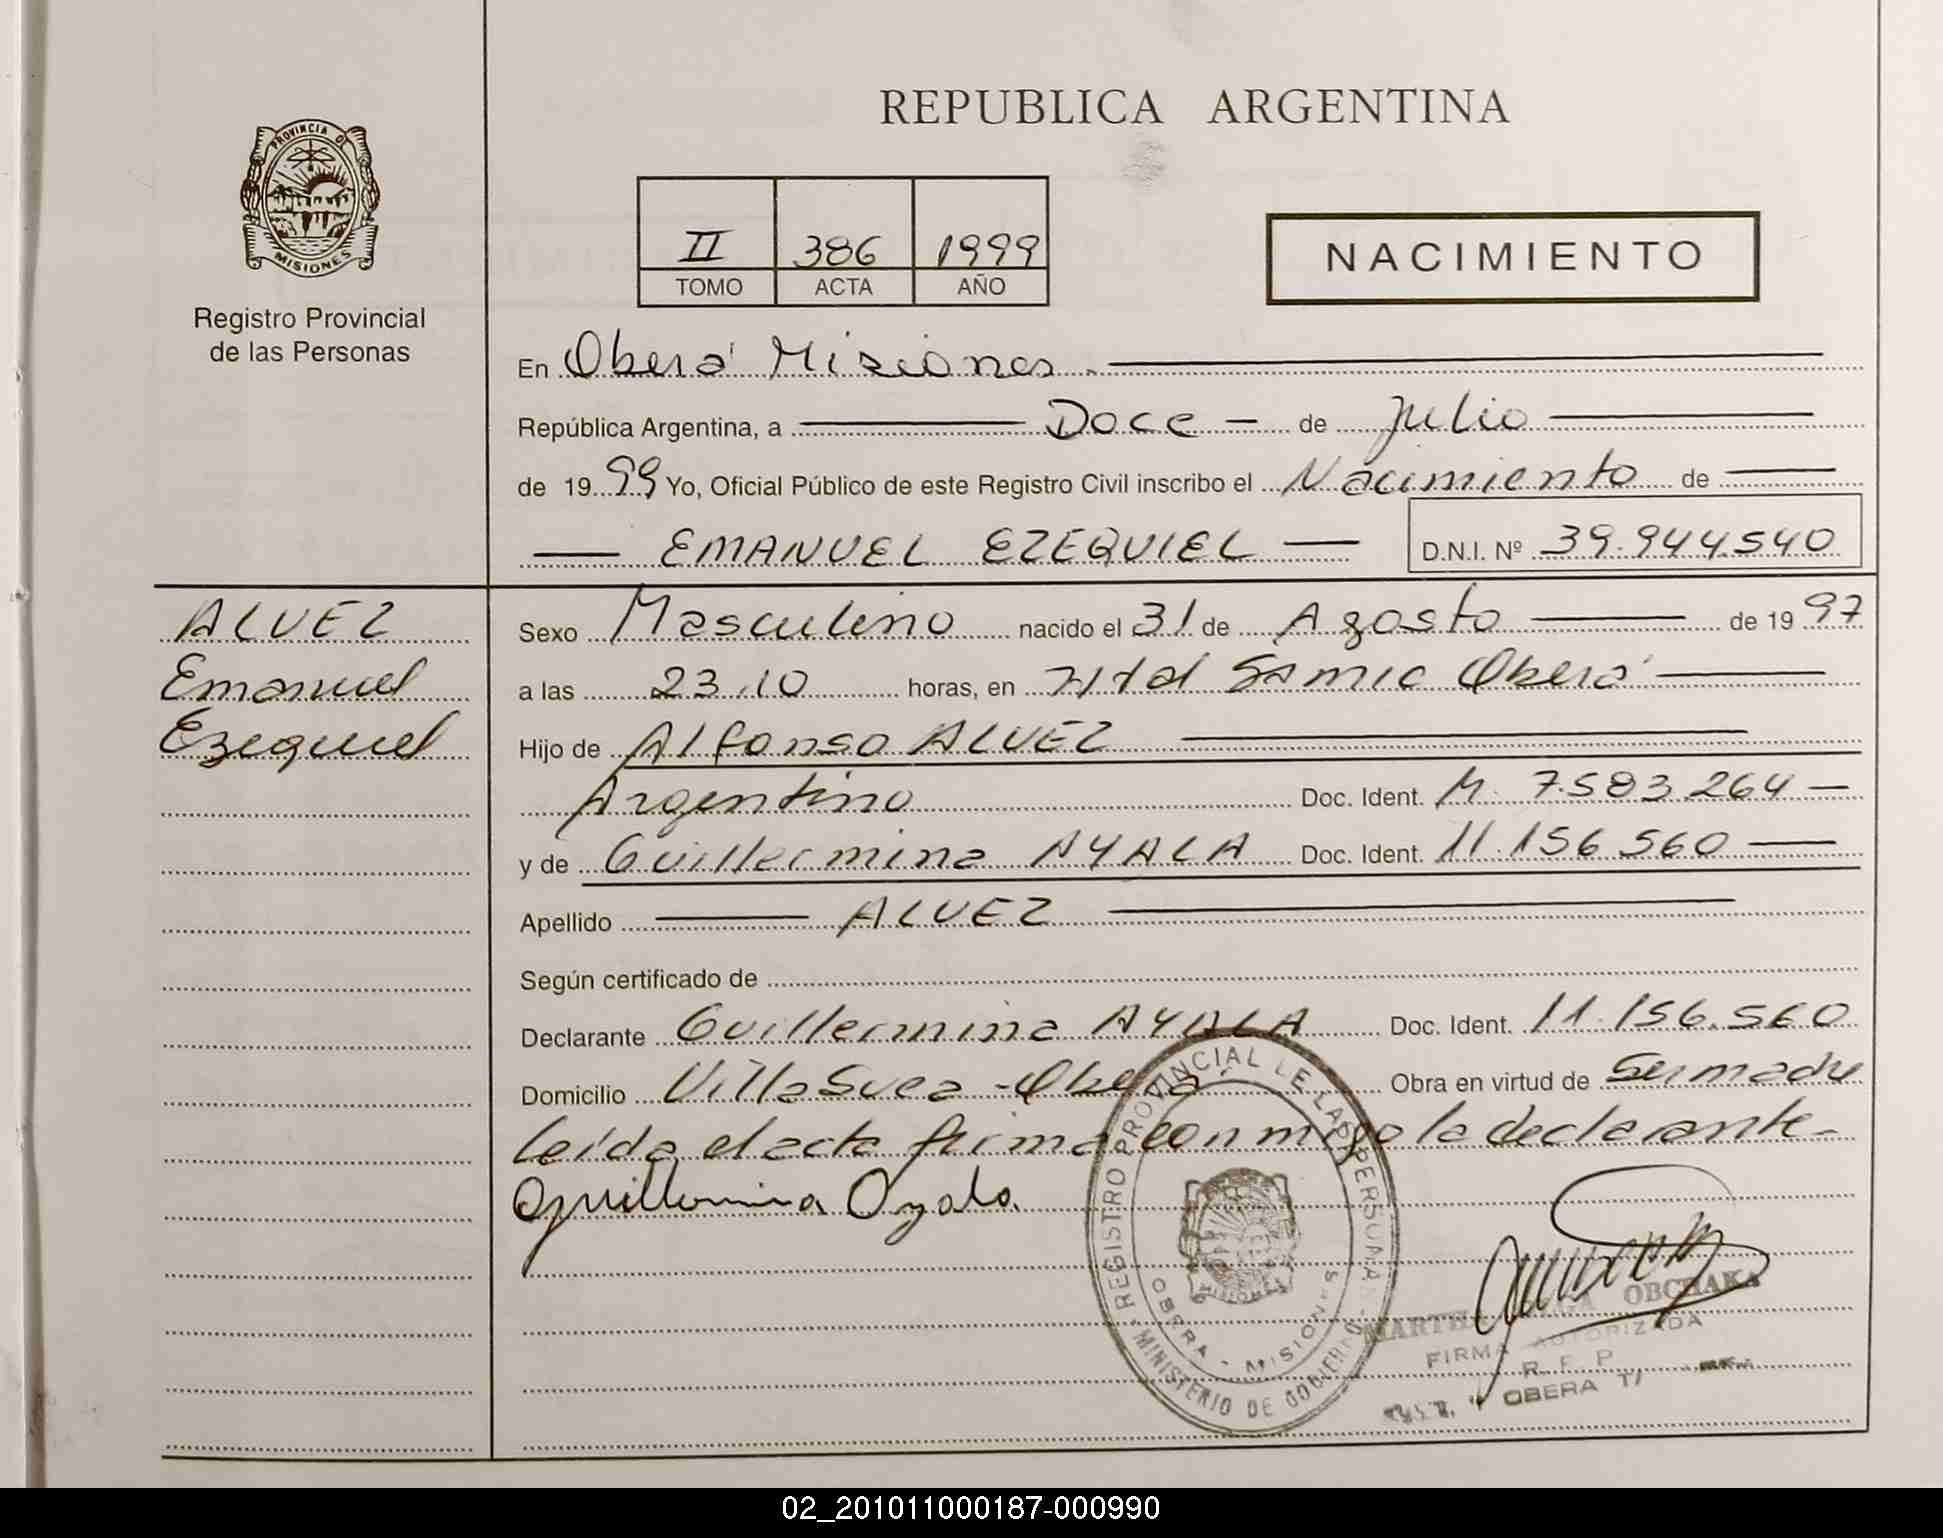 REPUBLICA ARGENTINA
PROVINCIA D
MISIONES
Registro Provincial
de las Personas
II 386 1999
TOMO ACTA AÑO
NACIMIENTO
En Oberá Misiones.
República Argentina, a Doce de Julio
de 1999 Yo, Oficial Público de este Registro Civil inscribo el Nacimiento de
EMANUEL EZEQUIEL D.N.I. Nº 39.944.540
ALVEZ
Emanuel
Ezequiel
Sexo Masculino nacido el 31 de Agosto de 1997
a las 23.10 horas, en Htal Samic Oberá
Hijo de Alfonso ALVEZ
Argentino Doc. Ident. M. 7.583.264
y de Guillermina AYALA Doc. Ident. 11.156.560
Apellido ALVEZ
Según certificado de
Declarante Guillermina AYALA Doc. Ident. 11.156.560
Domicilio Villa Svea - Oberá Obra en virtud de Ser madre
Leída el acta firma conmigo la declarante-
Guillermina Ayala.
REGISTRO PROVINCIAL DE LAS PERSONAS
MINISTERIO DE GOBIERNO
OBERA - MISIONES
MISIONES
MARTHA OLGA OBCHAKA
FIRMA AUTORIZADA
R. P. P.
OBERA
02_201011000187-000990